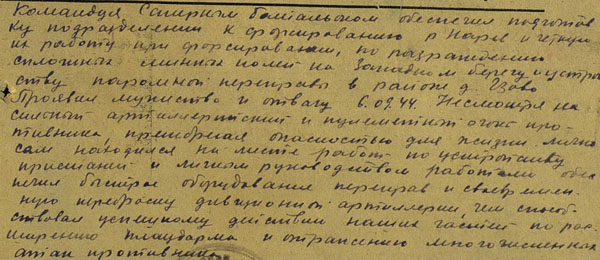 Командуя Саперным батальоном обеспечил подготов
ку подразделений к форсированию р. Нарев и четкую
их работу при форсировании, по разграждению
сплошных минных полей на Западном берегу и устрой
ству паромной переправы в районе д.
Проявил мужество и отвагу 6.09.44. Несмотря на
сильный артиллерийский и пулеметный огонь про-
тивника, пренебрегая опасностью для жизни лично
сам находился на месте работ по устройству
пристаней и личным руководством работами обес
печил быстрое оборудование переправ и своевремен
ную переброску дивизионной артиллерии, чем способ-
ствовал успешному действию наших частей по рас
ширению плацдарма и отражению многочисленных
атак противника